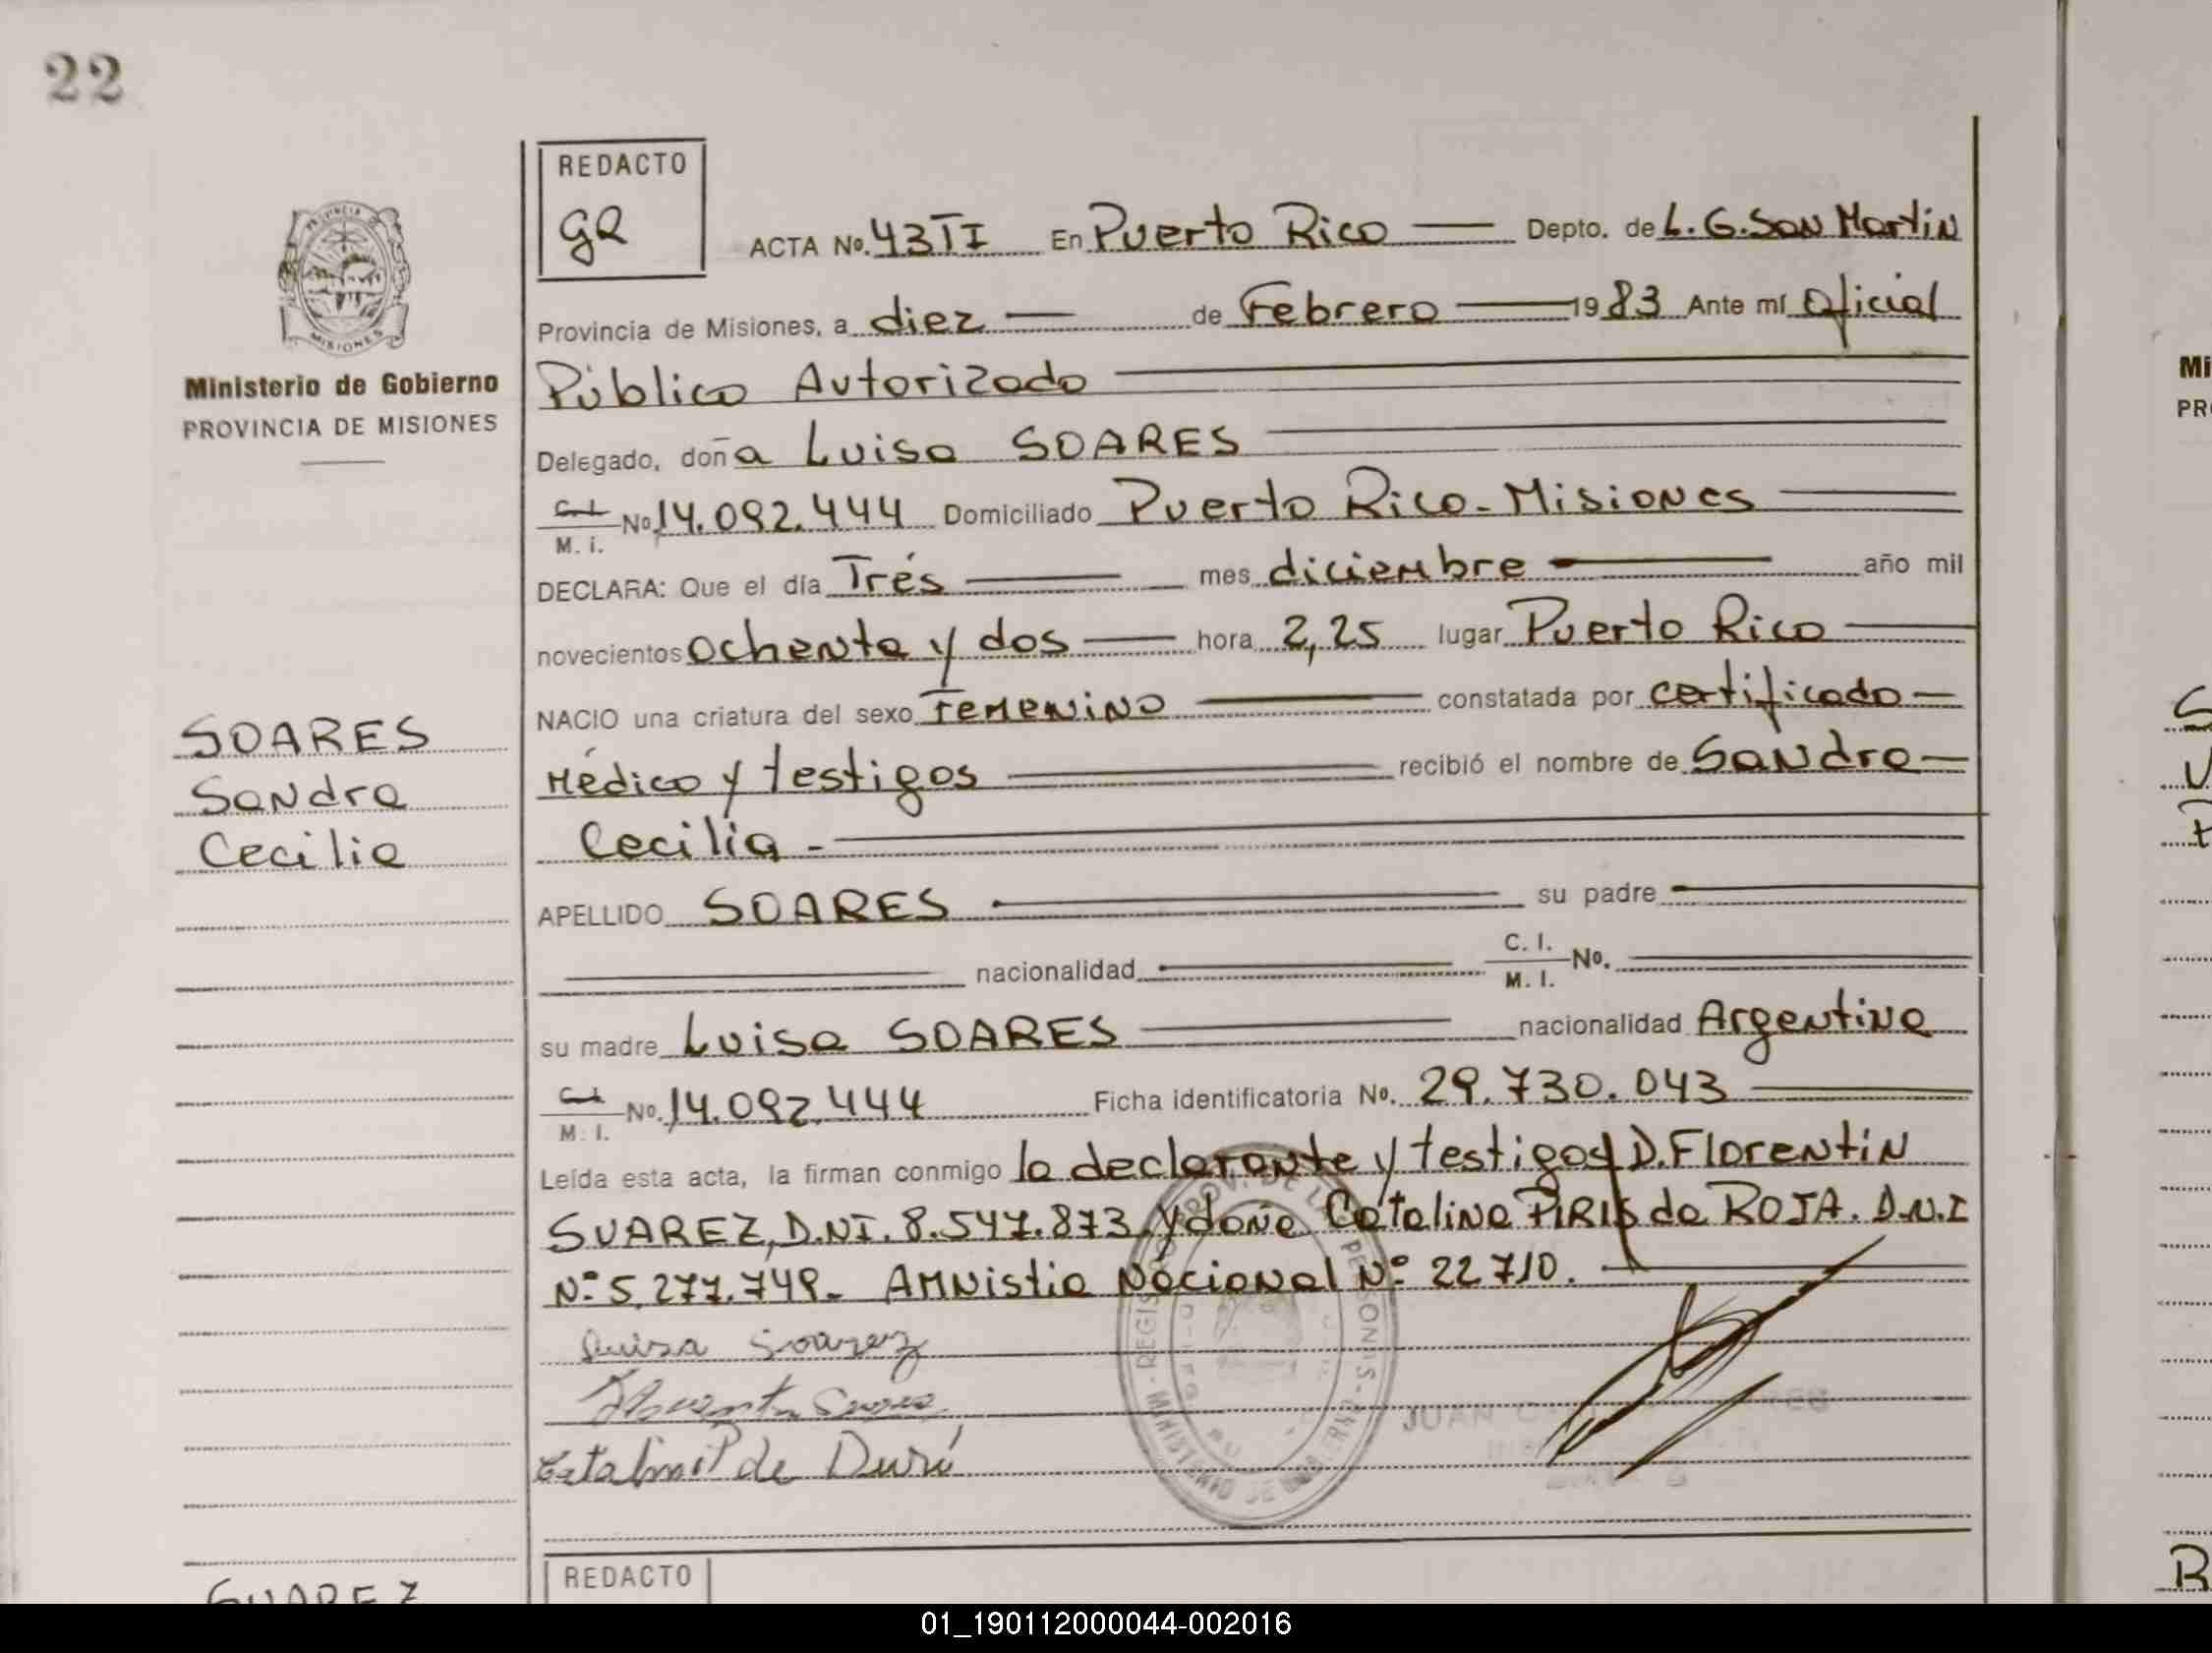 22
REDACTO
GR
ACTA No. 43TI En Puerto Rico Depto. de L. G. San Martin
Provincia de Misiones, a diez de Febrero 1983 Ante mí Oficial
Público Autorizado
Ministerio de Gobierno
PROVINCIA DE MISIONES
Delegado, doña Luisa SOARES
C. I. M. i. No. 14.092.444 Domiciliado Puerto Rico - Misiones
DECLARA: Que el día Trés mes diciembre año mil
novecientos ochenta y dos hora 2,25 lugar Puerto Rico
NACIO una criatura del sexo Femenino constatada por certificado
Médico y testigos recibió el nombre de Sandra
Cecilia -
SOARES
Sandra
Cecilia
APELLIDO SOARES su padre
nacionalidad C. I. M. I. No.
su madre Luisa SOARES nacionalidad Argentina
C. I. M. I. No. 14.092.444 Ficha identificatoria No. 29.730.043
Leída esta acta, la firman conmigo la declarante y testigos D. Florentin
SUAREZ, D.NI. 8.547.873 y doña Catalina PIRIS de ROJA. D.N.I
Nº 5.277.749. Amnistia Nacional Nº 22710.
Luisa Soarez
Catalina P de Duré
JUAN
REDACTO
SUAREZ
01_190112000044-002016